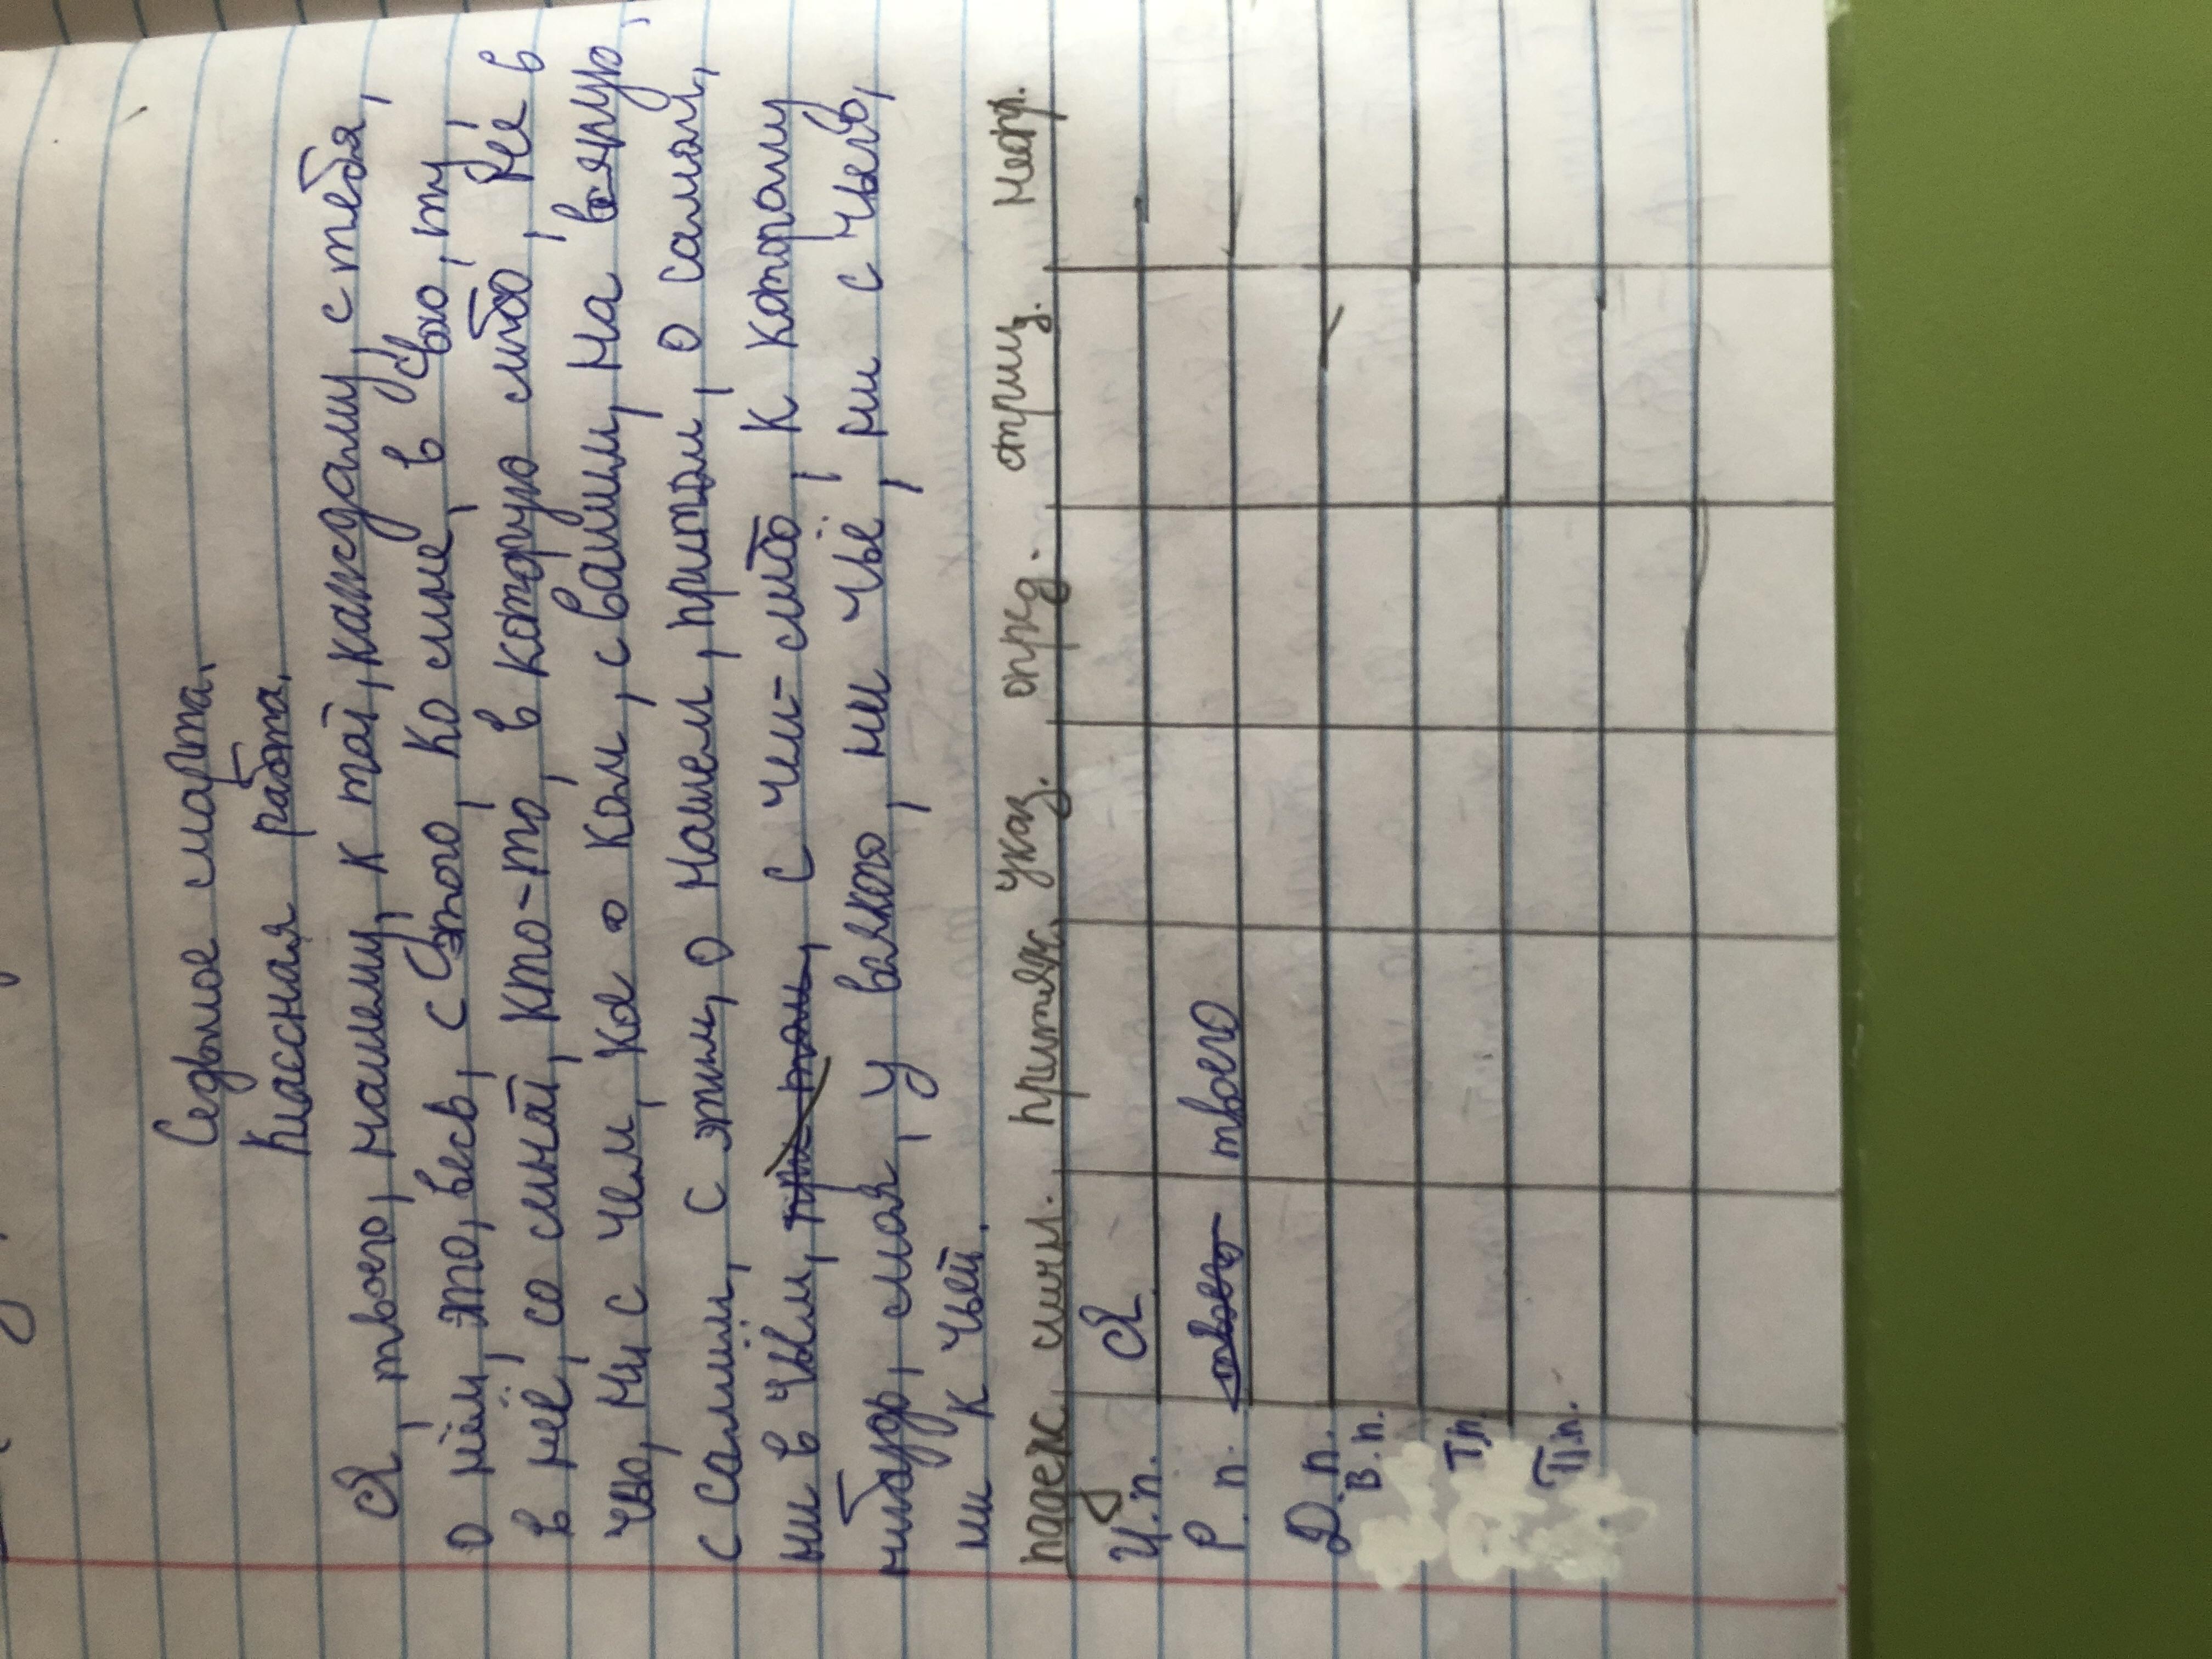 Седьмое марта.
Классная работа.
Я, твоего, нашему, к той, каждому, с тебя,
о нём, это, весь, с этого, ко мне, в свою, ту
в неё, со мной, кто-то, в которую либо, неё в
чью, ни с чем, о ком, с вашим, на всякую,
с самим, с этим, о нашем, при том, о самом,
ни в чём, при том, с чем-либо, к которому
нибудь, моя, у всякого, ни чьё, ни с чьего,
ни к чьей.
падеж. личн. притяж. указ. опред. отриц. неопр.
И.п. Я
Р.п. твоего
Д.п.
В.п.
Т.п.
П.п.